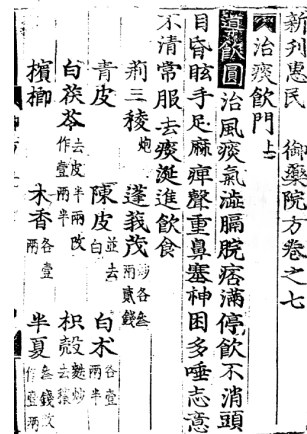 新刊惠民御藥院方卷之七
治痰飲門上
導飲圓治風痰氣澁膈脘痞滿停飲不消頭
目昏眩手足麻痹聲重鼻塞神困多唾志意
不清常服去痰涎進飲食
荊三稜炮 蓬莪茂炒各叁兩貳錢
青皮 陳皮並去白 白朮各壹兩半
白茯苓去皮兩改作壹兩半 木香各壹兩 枳殼麩炒去穰
檳榔 半夏叁錢改作壹兩